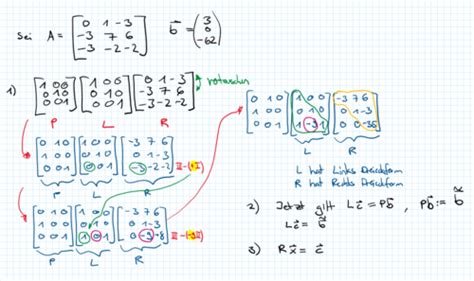 Sei A = [0 1 -3; -3 7 6; -3 -2 -2] b⃗ = (3; 0; -62)
1) [1 0 0; 0 1 0; 0 0 1] [1 0 0; 0 1 0; 0 0 1] [0 1 -3; -3 7 6; -3 -2 -2] vertauschen
P L R
[0 1 0; 1 0 0; 0 0 1] [1 0 0; 0 1 0; 0 0 1] [-3 7 6; 0 1 -3; -3 -2 -2] III-(1·I)
P L R
[0 1 0; 1 0 0; 0 0 1] [1 0 0; 0 1 0; 1 0 1] [-3 7 6; 0 1 -3; 0 -9 -8] III-(-9II)
P L R
[0 1 0; 1 0 0; 0 0 1] [1 0 0; 0 1 0; 1 -9 1] [-3 7 6; 0 1 -3; 0 0 -35]
L R
L hat Links Dreiecksform
R hat Rechts Dreiecksform
2) Jetzt gilt Lc⃗ = Pb⃗ , Pb⃗ := b̃
Lc⃗ = b̃
3) Rx⃗ = c⃗